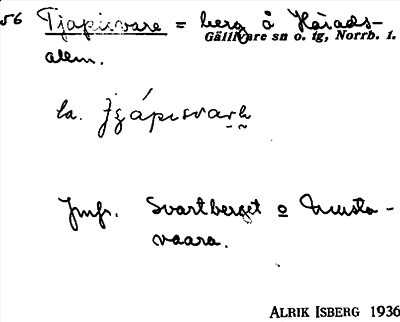 56 Tjapisvare = berg å Härads-
Gällivare sn o. tg, Norrb. l.
allm.
la. 
Jmfr. Svartberget o Musta-
vaara.
ALRIK ISBERG 1936